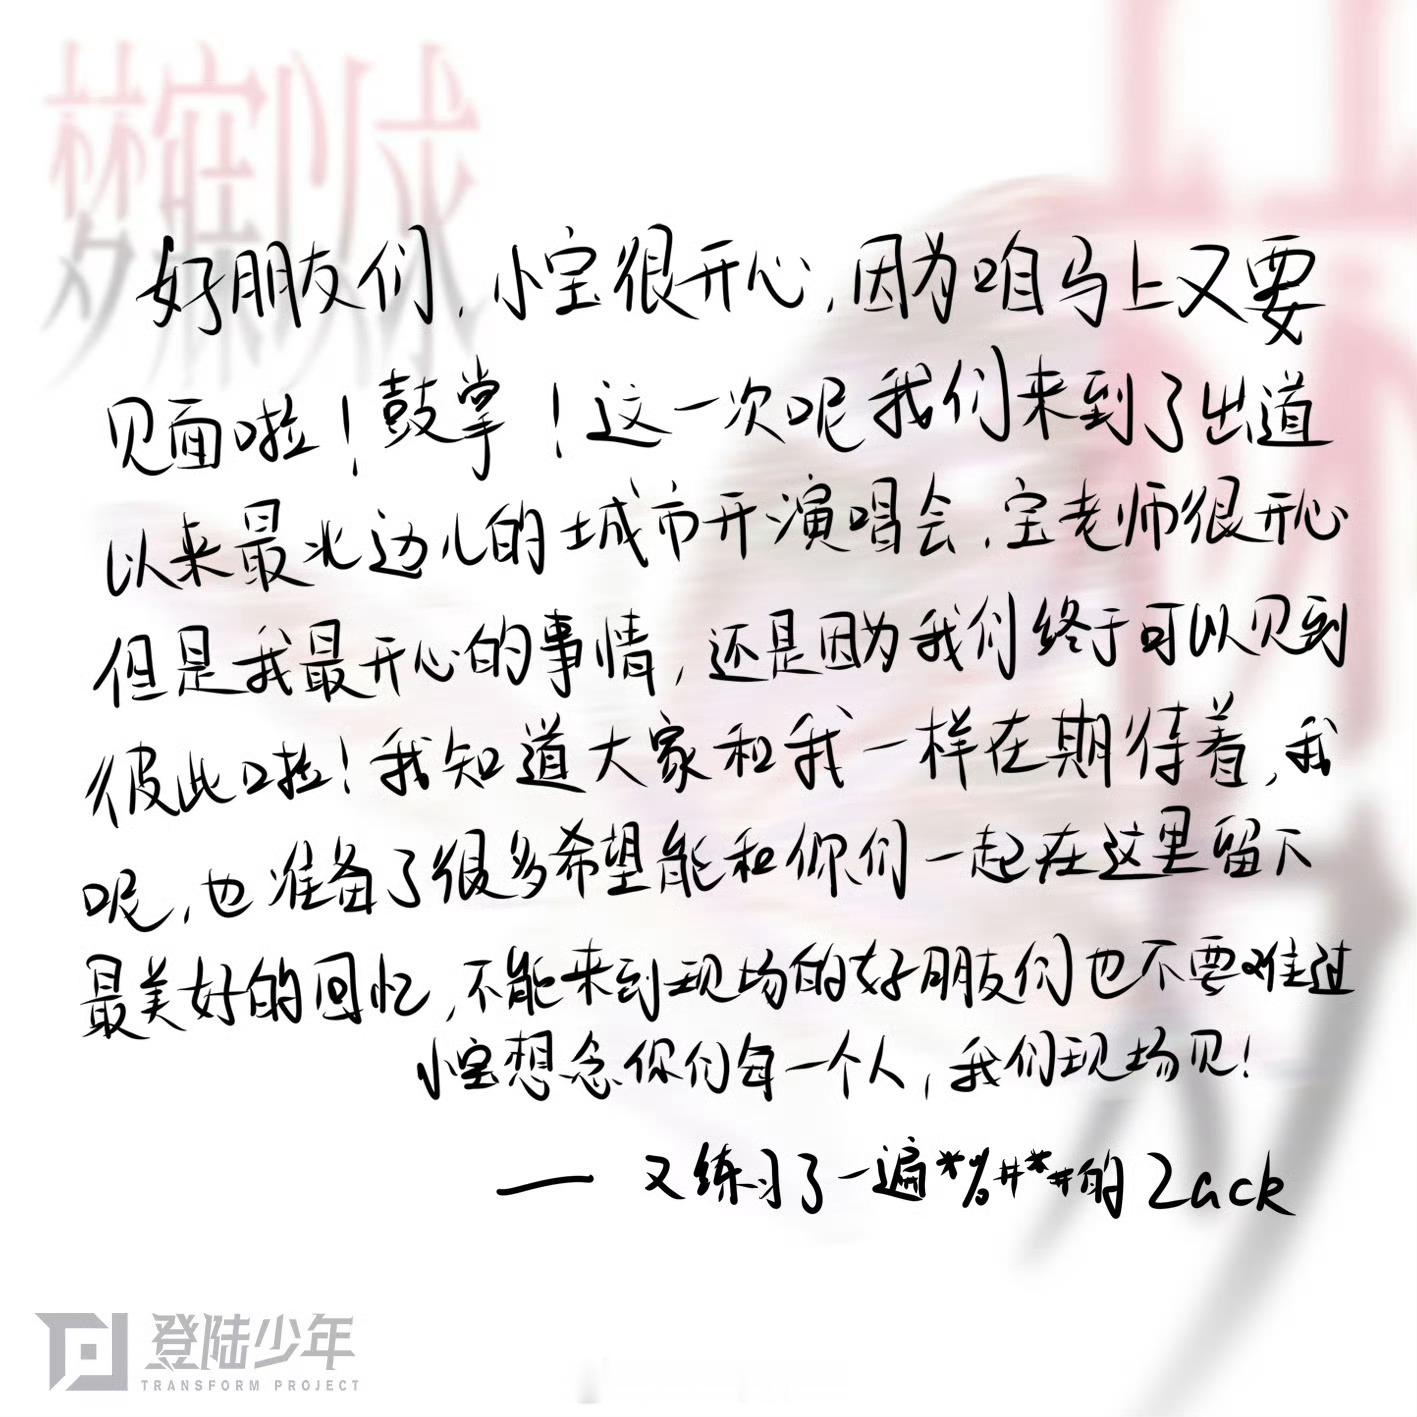 好朋友们,小宝很开心,因为咱马上又要
见面啦!鼓掌!这一次呢我们来到了出道
以来最北边儿的城市开演唱会,宝老师很开心
但是我最开心的事情,还是因为我们终于可以见到
彼此啦!我知道大家和我一样在期待着,我
呢,也准备了很多希望能和你们一起在这里留下
最美好的回忆,不能来到现场的好朋友们也不要难过
小宝想念你们每一个人,我们现场见!
—— 又练习了一遍*%#*#的Zack
登陆少年
TRANSFORM PROJECT